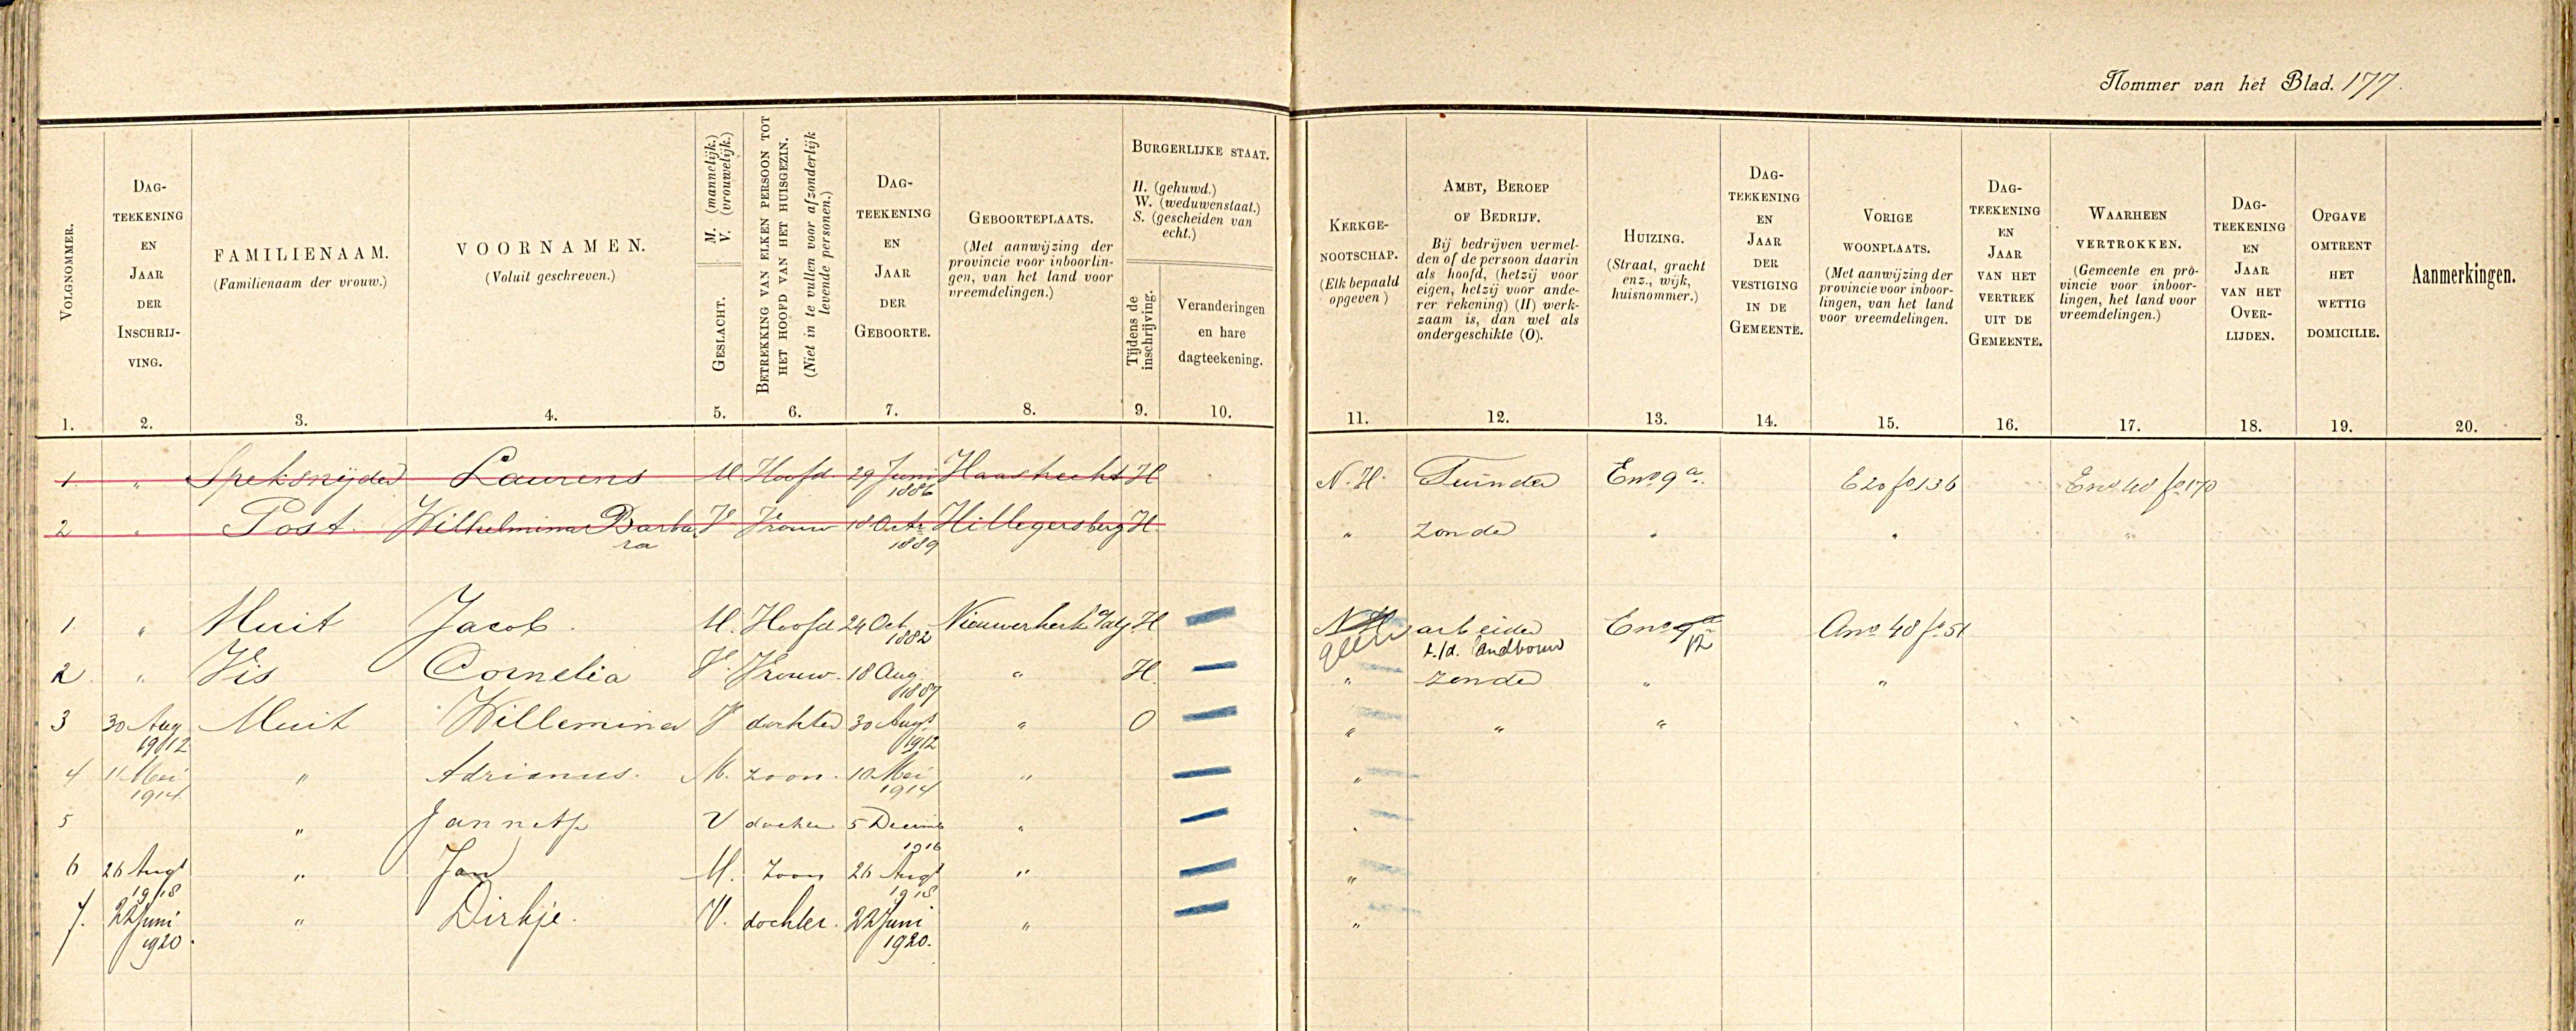 Nommer van het Blad. 177.
VOLGNOMMER.
1.
DAG-
TEEKENING
EN
JAAR
DER
INSCHRIJ-
VING.
2.
FAMILIENAAM.
(Familienaam der vrouw.)
3.
VOORNAMEN.
(Voluit geschreven.)
4.
M. (mannelijk.)
V. (vrouwelijk.)
GESLACHT.
5.
BETREKKING VAN ELKEN PERSOON TOT
HET HOOFD VAN HET HUISGEZIN.
(Niet in te vullen voor afzonderlijk
levende personen.)
6.
DAG-
TEEKENING
EN
JAAR
DER
GEBOORTE.
7.
GEBOORTEPLAATS.
(Met aanwijzing der
provincie voor inboorlin-
gen, van het land voor
vreemdelingen.)
8.
BURGERLIJKE STAAT.
H. (gehuwd.)
W. (weduwenstaat.)
S. (gescheiden van
echt.)
Tijdens de
inschrijving.
9.
Veranderingen
en hare
dagteekening.
10.
KERKGE-
NOOTSCHAP.
(Elk bepaald
opgeven)
11.
AMBT, BEROEP
OF BEDRIJF.
Bij bedrijven vermel-
den of de persoon daarin
als hoofd, (hetzij voor
eigen, hetzij voor ande-
rer rekening) (H) werk-
zaam is, dan wel als
ondergeschikte (O).
12.
HUIZING.
(Straat, gracht
enz., wijk,
huisnommer.)
13.
DAG-
TEEKENING
EN
JAAR
DER
VESTIGING
IN DE
GEMEENTE.
14.
VORIGE
WOONPLAATS.
(Met aanwijzing der
provincie voor inboor-
lingen, van het land
voor vreemdelingen.
15.
DAG-
TEEKENING
EN
JAAR
VAN HET
VERTREK
UIT DE
GEMEENTE.
16.
WAARHEEN
VERTROKKEN.
(Gemeente en pro-
vincie voor inboor-
lingen, het land voor
vreemdelingen.)
17.
DAG-
TEEKENING
EN
JAAR
VAN HET
OVER-
LIJDEN.
18.
OPGAVE
OMTRENT
HET
WETTIG
DOMICILIE.
19.
Aanmerkingen.
20.
1 " Speksnijder Laurens M Hoofd 29 Juni 1886 Haastrecht H N.H. Tuinder Eno 9a. E20 fo 136 Eno 40 fo 170
2 " Post. Wilhelmina Barbara V Vrouw 18 Octr 1889 Hillegersberg H. " zonder " " "
1 " Muit Jacob. M. Hoofd 24 Oct 1882 Nieuwerkerk a/dy H NH geen arbeider t./d. landbouw Eno 9a 12 Ano 48 fo 51
2 " Vis Cornelia V. Vrouw. 18 Aug 1887 " H. " zonder " "
3 30 Aug 1912 Muit Willemina V dochter 30 Augs 1912 " O " " "
4 11 Mei 1914 " Adrianus. M. zoon. 10 Mei 1914 " "
5 " Jannetje V dochter 5 Decemb 1916 " "
6 26 Augt 1918 " Jan M. zoon 26 Augt 1918 " "
7. 22 Juni 1920. " Dirkje. V. dochter. 22 Juni 1920. " "